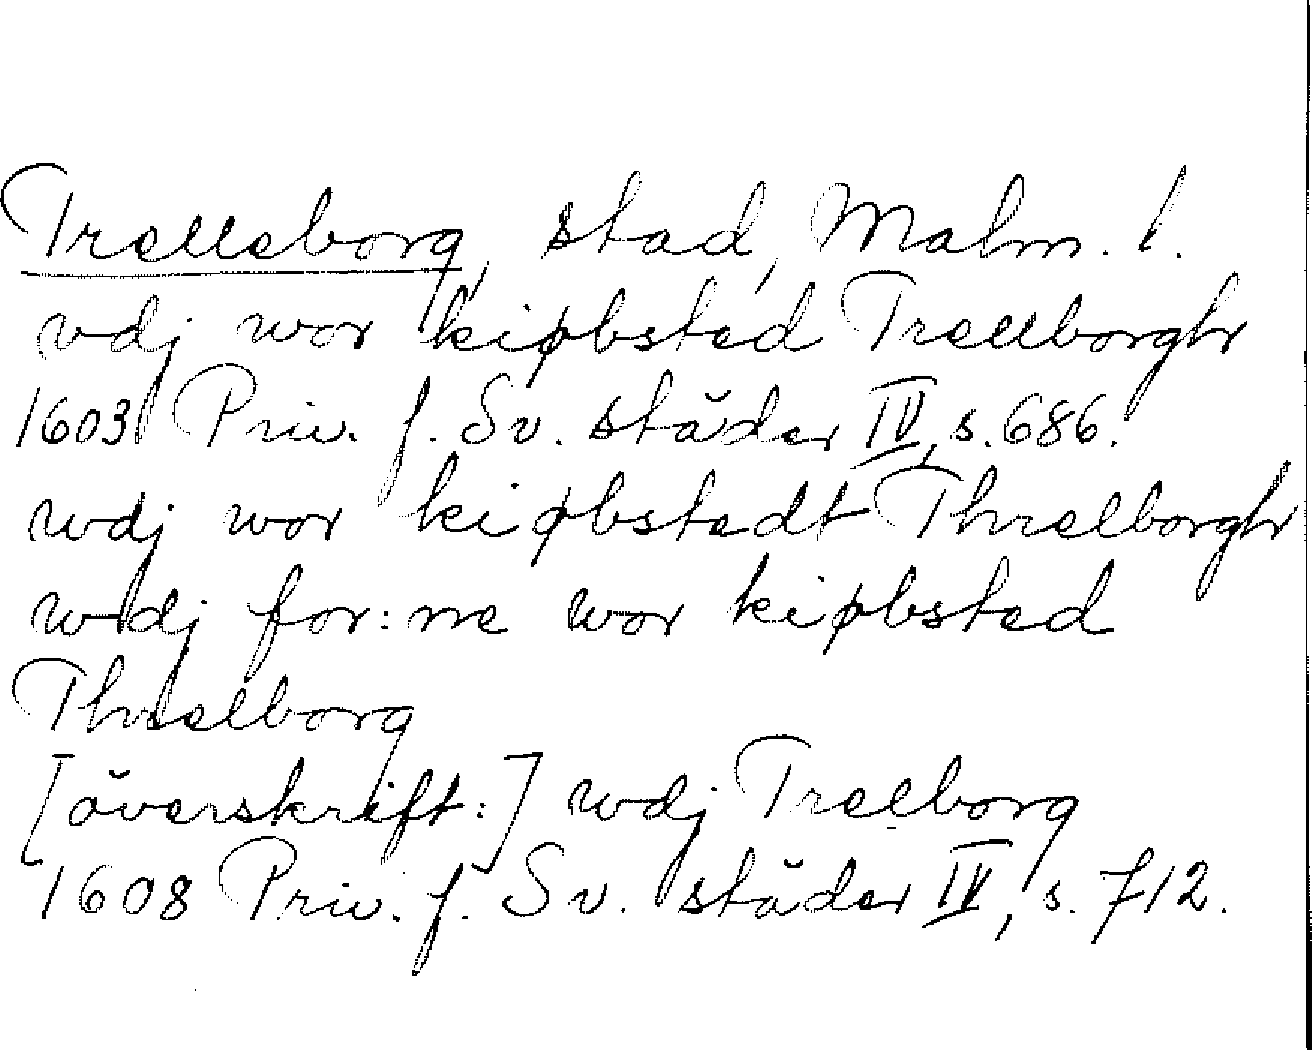 Trelleborg, stad, Malm. l.
vdj wor kiøbsted Trellborghr
1603 Priv. f. Sv. städer IV, s. 686.
wdj wor kiøbstedt Threlborghr
wdj for:ne wor kiøbsted
Threlborg
[överskrift:] wdj Trelborg
1608 Priv. f. Sv. städer IV, s. 712.